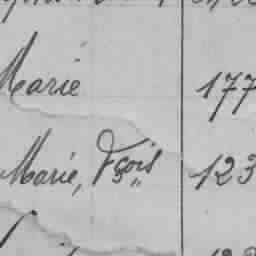 Marie 177
Marie, Fçois 123